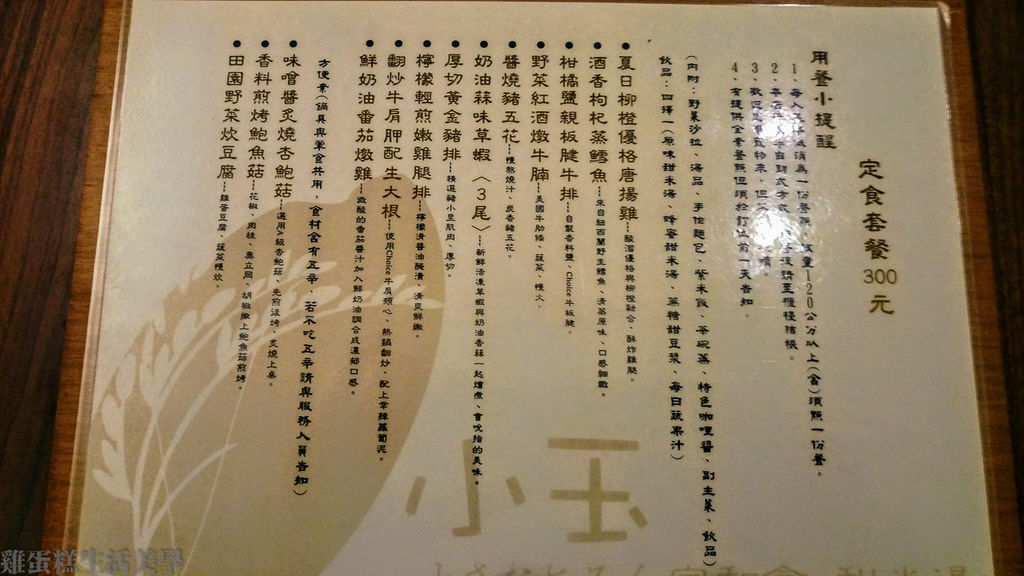 定食套餐300元
用餐小提醒
1、每人
一份餐點，
120公分以上(含)須點一份餐。
2、本店
自助式
後請至櫃檯結帳。
3、歡迎
4、有提供全素餐點但須於訂位前一天告知。
(內附：野菜沙拉、湯品、手作麵包、紫米飯、茶碗蒸、特色咖哩醬、副主菜、飲品)
飲品：四擇一(原味甜米湯、蜂蜜甜米湯、黑糖甜豆漿、每日蔬果汁)
•夏日柳橙優格唐揚雞---酸溜優格與柳橙融合、酥炸雞腿。
•酒香枸杞蒸鱈魚---來自紐西蘭野生鱈魚、清蒸原味、口感細緻。
•柑橘鹽親板腱牛排---自製香料鹽、Choice牛板腱。
•野菜紅酒燉牛腩---美國牛肋條、蔬菜、慢火。
•醬燒豬五花---慢熬燒汁、炭香豬五花。
•奶油蒜味草蝦〈3尾〉---新鮮活凍草蝦與奶油香蒜一起燴煮、會吮指的美味。
•厚切黃金豬排---精選豬小里肌肉、厚切。
•檸檬輕煎嫩雞腿排---檸檬清醬油醃漬、清爽鮮嫩。
•翻炒牛肩胛配生大根---使用Choice牛肩頰心、熱鍋翻炒、配上辛辣蘿蔔泥。
•鮮奶油番茄燉雞---微酸的番茄醬汁加入鮮奶油調合成濃郁口感。
方便素(鍋具與葷食共用，食材含有五辛，若不吃五辛請與服務人員告知)
•味噌醬炙燒杏鮑菇---選用A級杏鮑菇、先煎後烤、炙燒上桌。
•香料煎烤鮑魚菇---花椒、肉桂、奧立岡、胡椒撒上鮑魚菇煎烤。
•田園野菜炊豆腐---雞蛋豆腐、蔬菜慢炊。
小玉
雞蛋糕生活美學